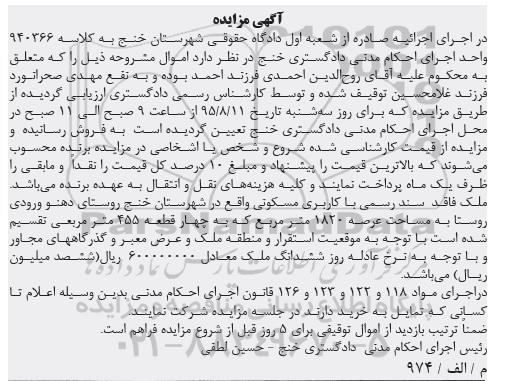 آگهی مزایده
در اجرای اجرائیه صادره از شعبه اول دادگاه حقوقی شهرستان خنج به کلاسه ۹۴۰۳۶۶
واحد اجرای احکام مدنی دادگستری خنج در نظر دارد اموال مشروحه ذیل را که متعلق
به محکوم علیه آقای روح‌الدین احمدی فرزند احمد بوده و به نفع مهدی صحرانورد
فرزند غلامحسین توقیف شده و توسط کارشناس رسمی دادگستری ارزیابی گردیده از
طریق مزایده که برای روز سه‌شنبه تاریخ ۹۵/۸/۱۱ از ساعت ۹ صبح الی ۱۱ صبح در
محل اجرای احکام مدنی دادگستری خنج تعیین گردیده است به فروش رسانیده و
مزایده از قیمت کارشناسی شده شروع و شخص یا اشخاصی در مزایده برنده محسوب
می‌شوند که بالاترین قیمت را پیشنهاد و مبلغ ۱۰ درصد کل قیمت را نقداً و مابقی را
ظرف یک ماه پرداخت نمایند و کلیه هزینه‌های نقل و انتقال به عهده برنده می‌باشد.
ملک فاقد سند رسمی با کاربری مسکونی واقع در شهرستان خنج روستای دهنو ورودی
روستا به مساحت عرصه ۱۸۲۰ متر مربع که به چهار قطعه ۴۵۵ متر مربعی تقسیم
شده است با توجه به موقعیت استقرار و منطقه ملک و عرض معبر و گذرگاههای مجاور
و با توجه به نرخ عادله روز ششدانگ ملک معادل ۶۰۰۰۰۰۰۰۰ ریال(ششصد میلیون
ریال) می‌باشد.
دراجرای مواد ۱۱۸ و ۱۲۲ و ۱۲۳ و ۱۲۶ قانون اجرای احکام مدنی بدین وسیله اعلام تا
کسانی که تمایل به خرید دارند در جلسه مزایده شرکت نمایند.
ضمناً ترتیب بازدید از اموال توقیفی برای ۵ روز قبل از شروع مزایده فراهم است.
رئیس اجرای احکام مدنی دادگستری خنج - حسین لطفی
م / الف / ۹۷۴